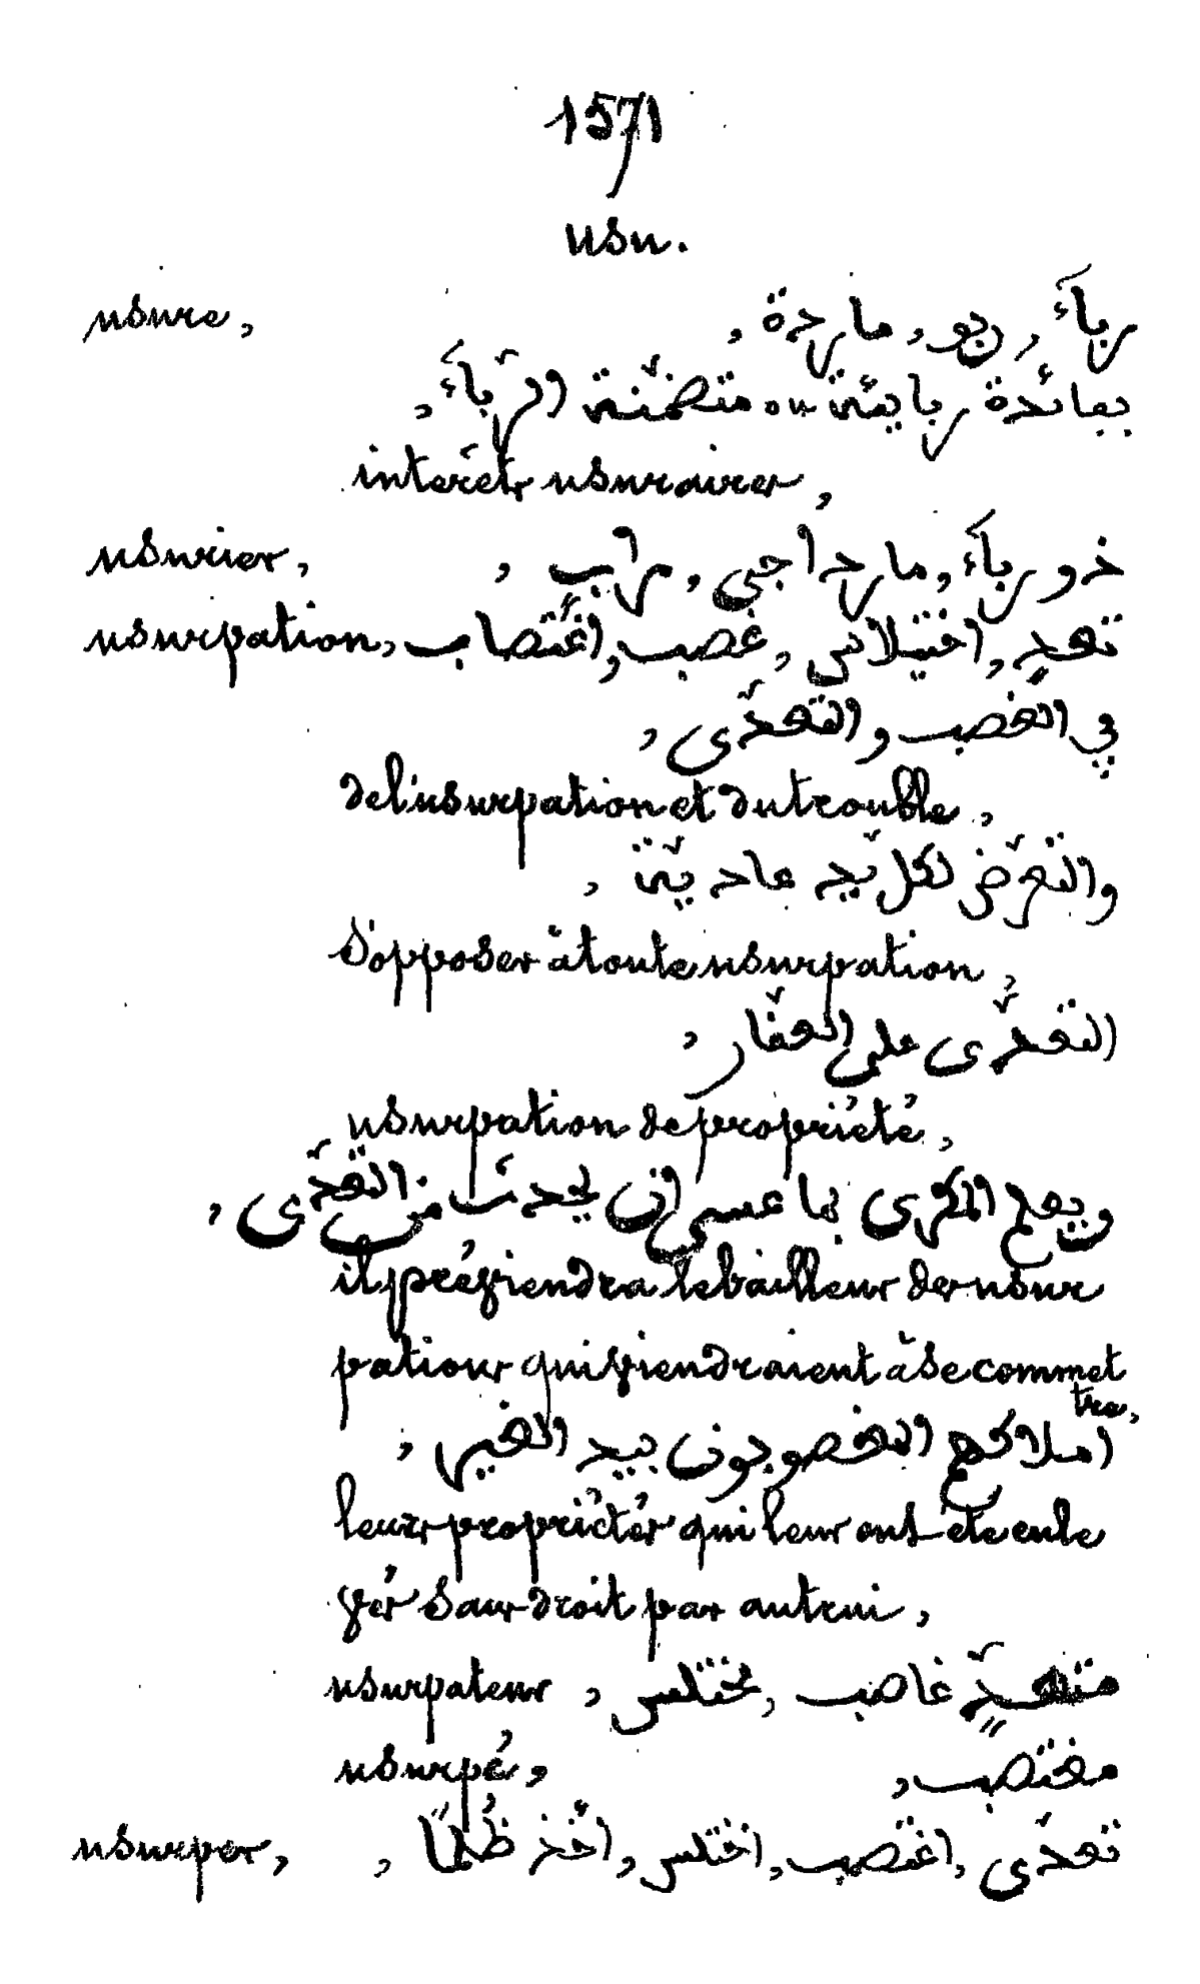 1571
usu.
usure, رباءً, ربو, ماردة,
بفائدة ربايئة ou متضمّنة الرّباءً,
interêts usuraires,
usurier, ذو رباءً, ماردا جى, مرابٍ,
usurpation, تعدٍ, اختيلاس, غصب, اغتصاب
في الغصب والتعدّى,
de l'usurpation et du trouble,
والتعرّض لكل يد عاديّة,
s'opposer à toute usurpation,
التعدّى على العقّار,
usurpation de propriété,
ويعلم المكرى بما عسى ان يحدث من التعدّى,
il préviendra le bailleur des usur
pations qui viendraient à se commet
tre,
املاكهم المغصوبون بيد الغير,
leurs propriétés qui leur ont été enle
vés sans droit par autrui,
usurpateur, متعدٍّ غاصب, مختلس
usurpé, مغتصب,
usurper, تعدّى, اغتصب, اختلس, اخذ ظُلمًا,